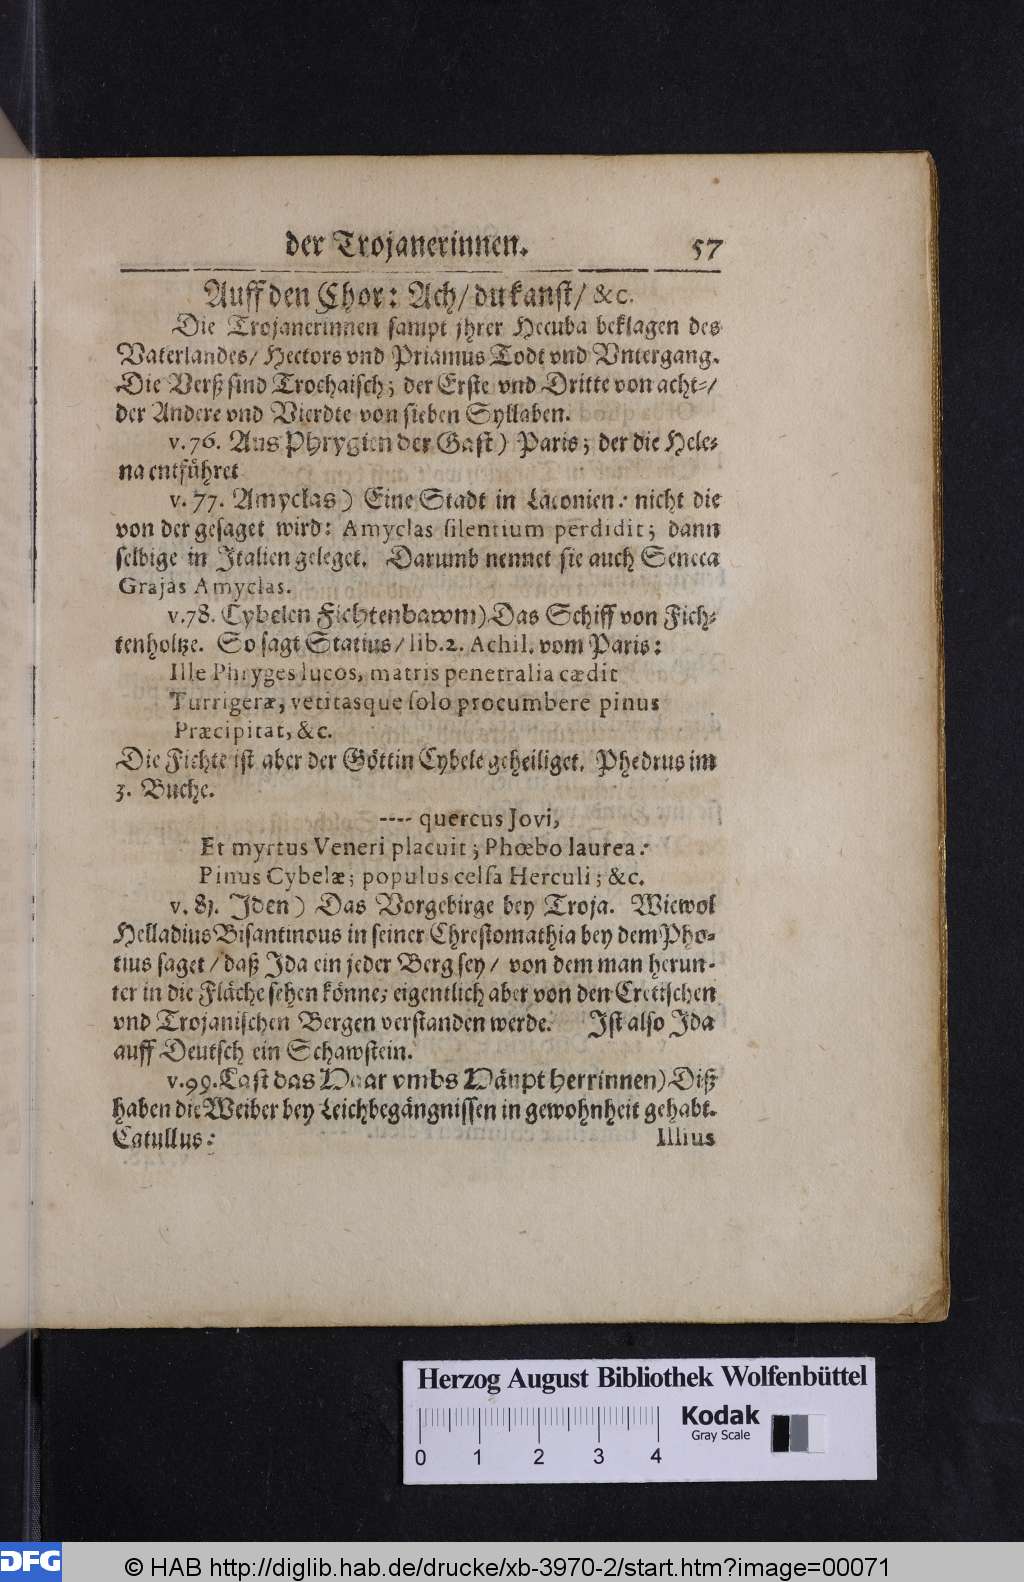 der Trojanerinnen. 57
Auff den Chor: Ach/ du kanst/ &c.
Die Trojanerinnen sampt jhrer Hecuba beklagen des
Vaterlandes/ Hectors vnd Priamus Todt vnd Vntergang.
Die Verß sind Trochaisch; der Erste vnd Dritte von acht-/
der Andere vnd Vierdte von sieben Syllaben.
v. 76. Aus Phrygien der Gast) Paris; der die Hele-
na entführet
v. 77. Amyclas) Eine Stadt in Laconien: nicht die
von der gesaget wird: Amyclas silentium perdidit; dann
selbige in Italien geleget. Darumb nennet sie auch Seneca
Grajas Amyclas.
v. 78. Cybelen Fichtenbawm) Das Schiff von Fich-
tenholtze. So sagt Statius/ lib. 2. Achil. vom Paris:
Ille Phryges lucos, matris penetralia cædit
Turrigeræ, vetitasque solo procumbere pinus
Præcipitat, &c.
Die Fichte ist aber der Göttin Cybele geheiliget. Phedrus im
3. Buche.
---- quercus Jovi,
Et myrtus Veneri placuit; Phœbo laurea:
Pinus Cybelæ; populus celsa Herculi; &c.
v. 81. Iden) Das Vorgebirge bey Troja. Wiewol
Helladius Bisantinous in seiner Chrestomathia bey dem Pho-
tius saget/ daß Ida ein jeder Berg sey/ von dem man herun-
ter in die Fläche sehen könne; eigentlich aber von den Cretischen
vnd Trojanischen Bergen verstanden werde. Ist also Ida
auff Deutsch ein Schawstein.
v. 99. Last das Haar vmbs Häupt herrinnen) Diß
haben die Weiber bey Leichbegängnissen in gewohnheit gehabt.
Catullus: Illius
Herzog August Bibliothek Wolfenbüttel
Kodak
Gray Scale
0 1 2 3 4
DFG © HAB http://diglib.hab.de/drucke/xb-3970-2/start.htm?image=00071